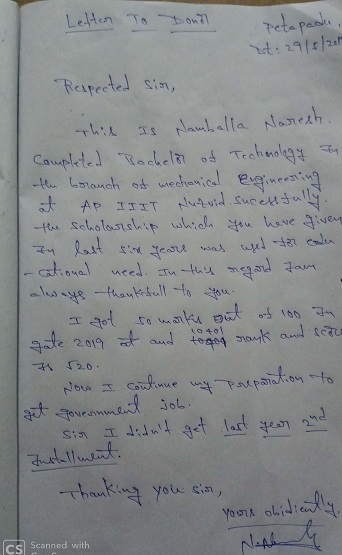 Letter To Donor
Petapadu,
Dt: 29/5/201
Respected Sir,
This Is Namballa Naresh.
Completed Bachelor of Technology In
the branch of mechanical Engineering
at AP IIIT Nuzvid sucessfully.
the scholarship which you have given
In last six years was used for edu
-cational need. In this regard I am
always thankfull to you.
I got 50 marks out of 100 In
gate 2019 at and 10401 rank and score
Is 520.
Now I continue my preparation to
get government job.
Sir I didn't get last year 2nd
Installment.
Thanking you sir,
yours obidiently,
CS Scanned with